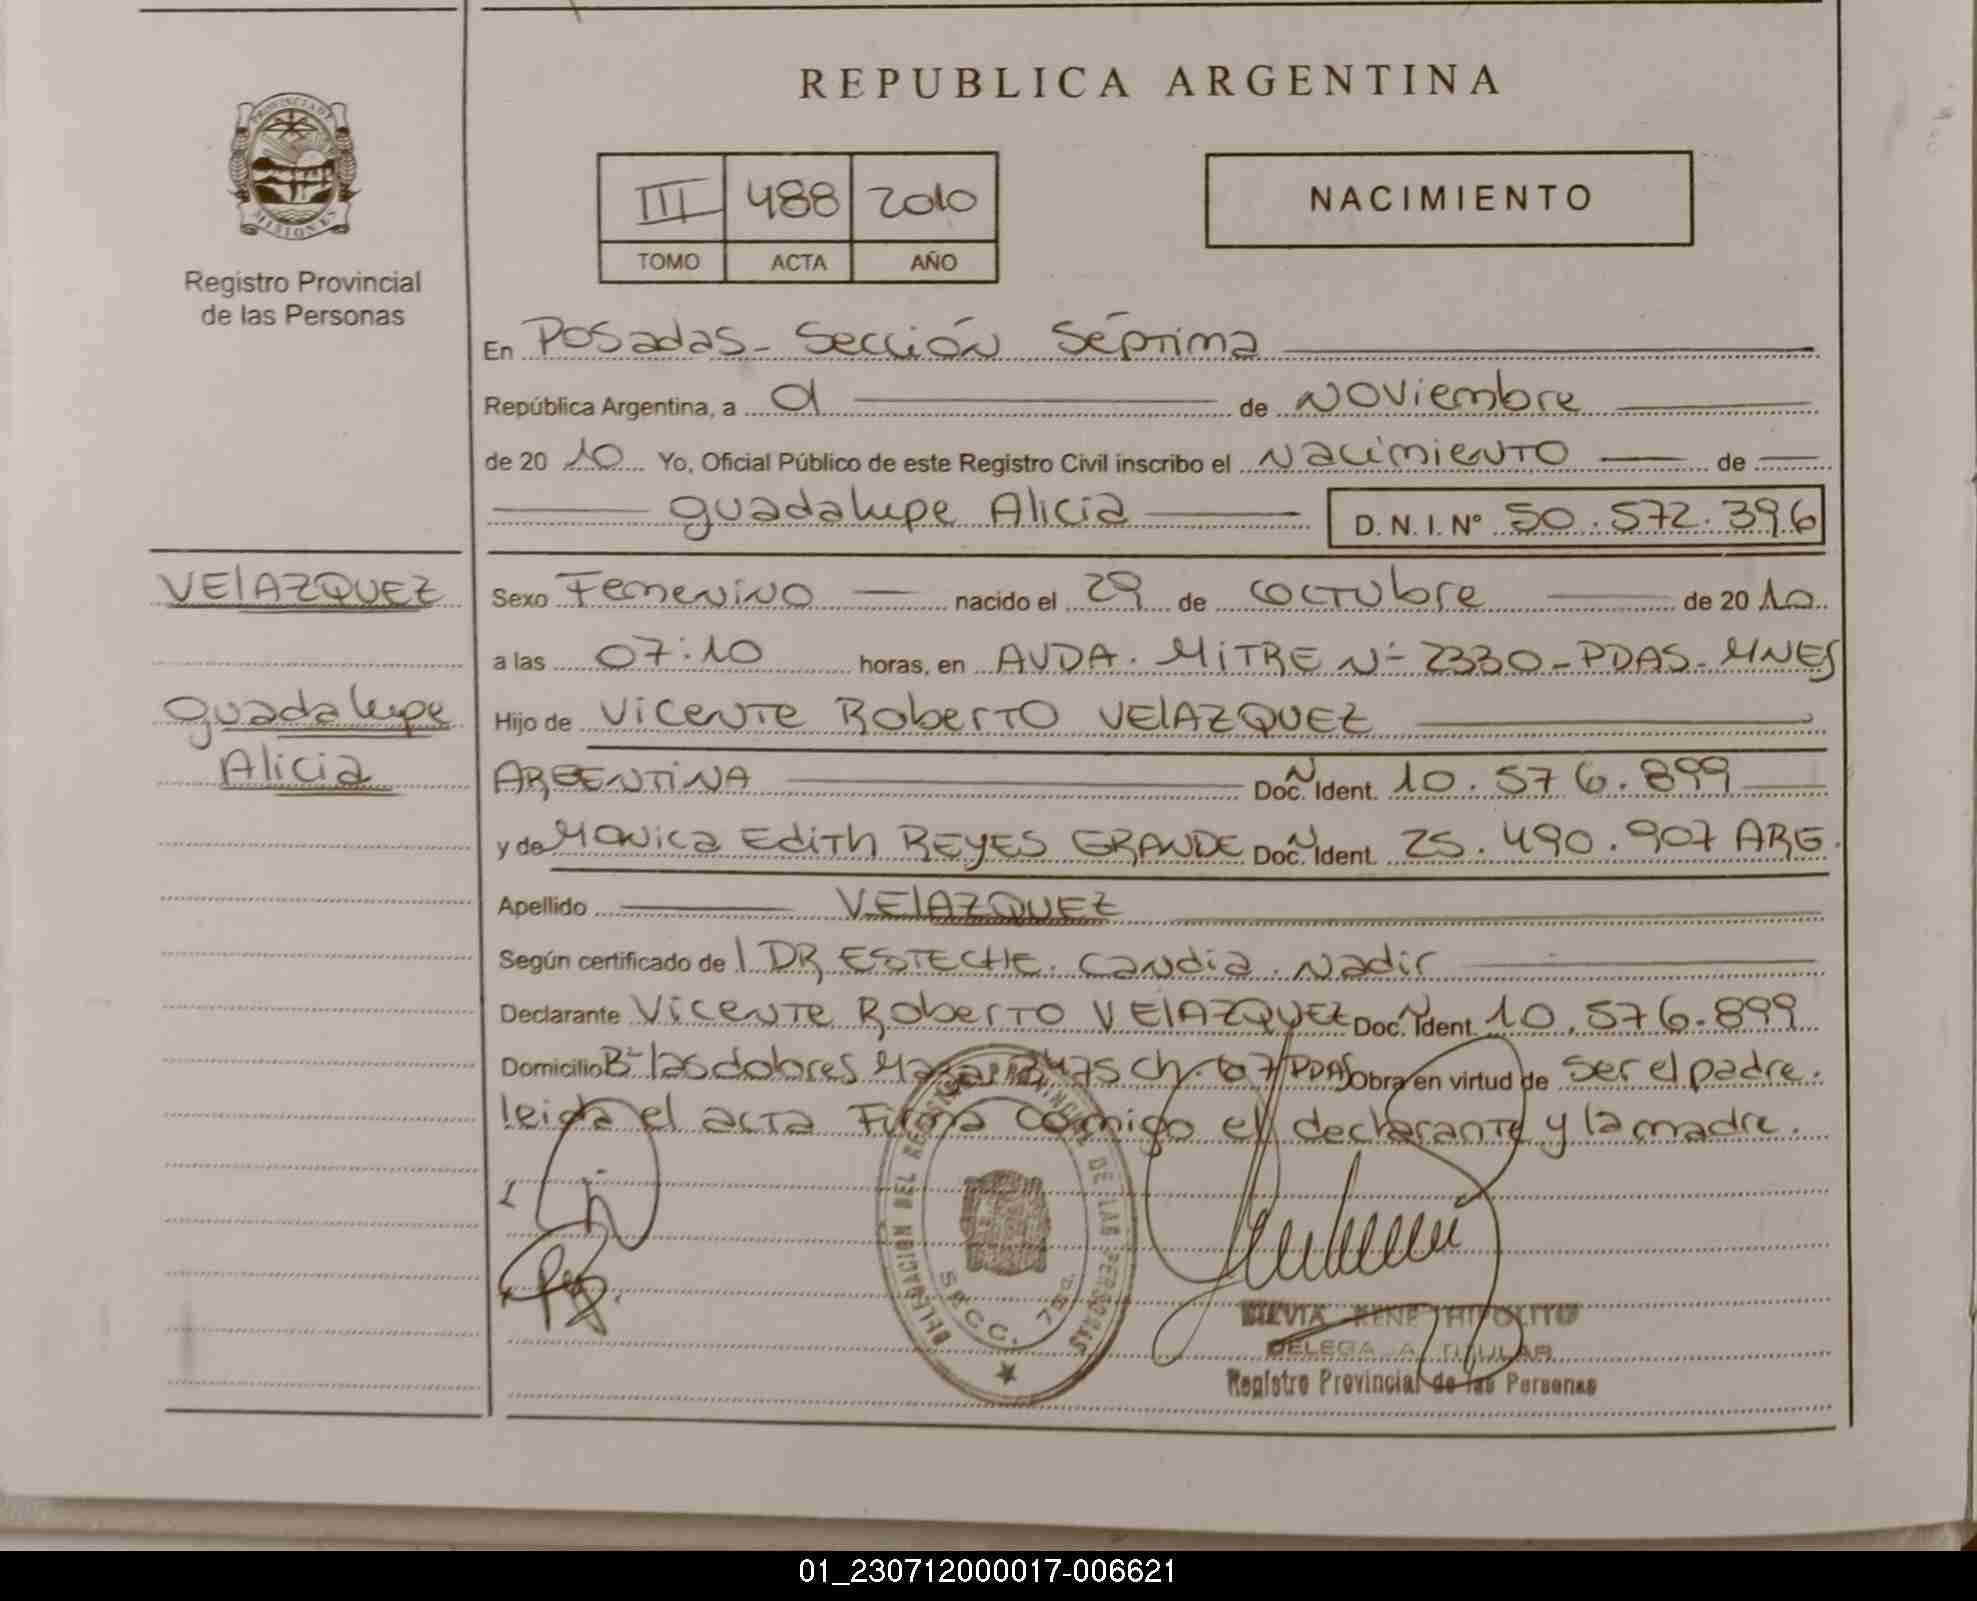 REPUBLICA ARGENTINA
PROVINCIA DE MISIONES
Registro Provincial
de las Personas
III 488 2010
TOMO ACTA AÑO
NACIMIENTO
En Posadas - Sección Séptima
República Argentina, a 01 de Noviembre
de 20 10 Yo, Oficial Público de este Registro Civil inscribo el Nacimiento de
Guadalupe Alicia D. N. I. Nº 50.572.396
VELAZQUEZ
Guadalupe
Alicia
Sexo Femenino nacido el 29 de octubre de 20 10
a las 07:10 horas, en AVDA. MITRE Nº 2330 - PDAS - MNES
Hijo de Vicente Roberto VELAZQUEZ
ARGENTINA Doc. N Ident. 10.576.899
y de Monica Edith REYES GRANDE Doc. N Ident. 25.490.907 ARG.
Apellido VELAZQUEZ
Según certificado de l DR ESTECHE. Candia. Nadir
Declarante Vicente Roberto VELAZQUEZ Doc. N Ident. 10.576.899
Domicilio Bº las dolores Ch. 67 PDAS Obra en virtud de ser el padre.
leida el acta Firma comigo el declarante y la madre.
DELEGACION DEL REGISTRO PROVINCIAL DE LAS PERSONAS
SECC. 7ma.
SILVIA RENE HIPOLITO
DELEGADA TITULAR
Registro Provincial de las Personas
01_230712000017-006621